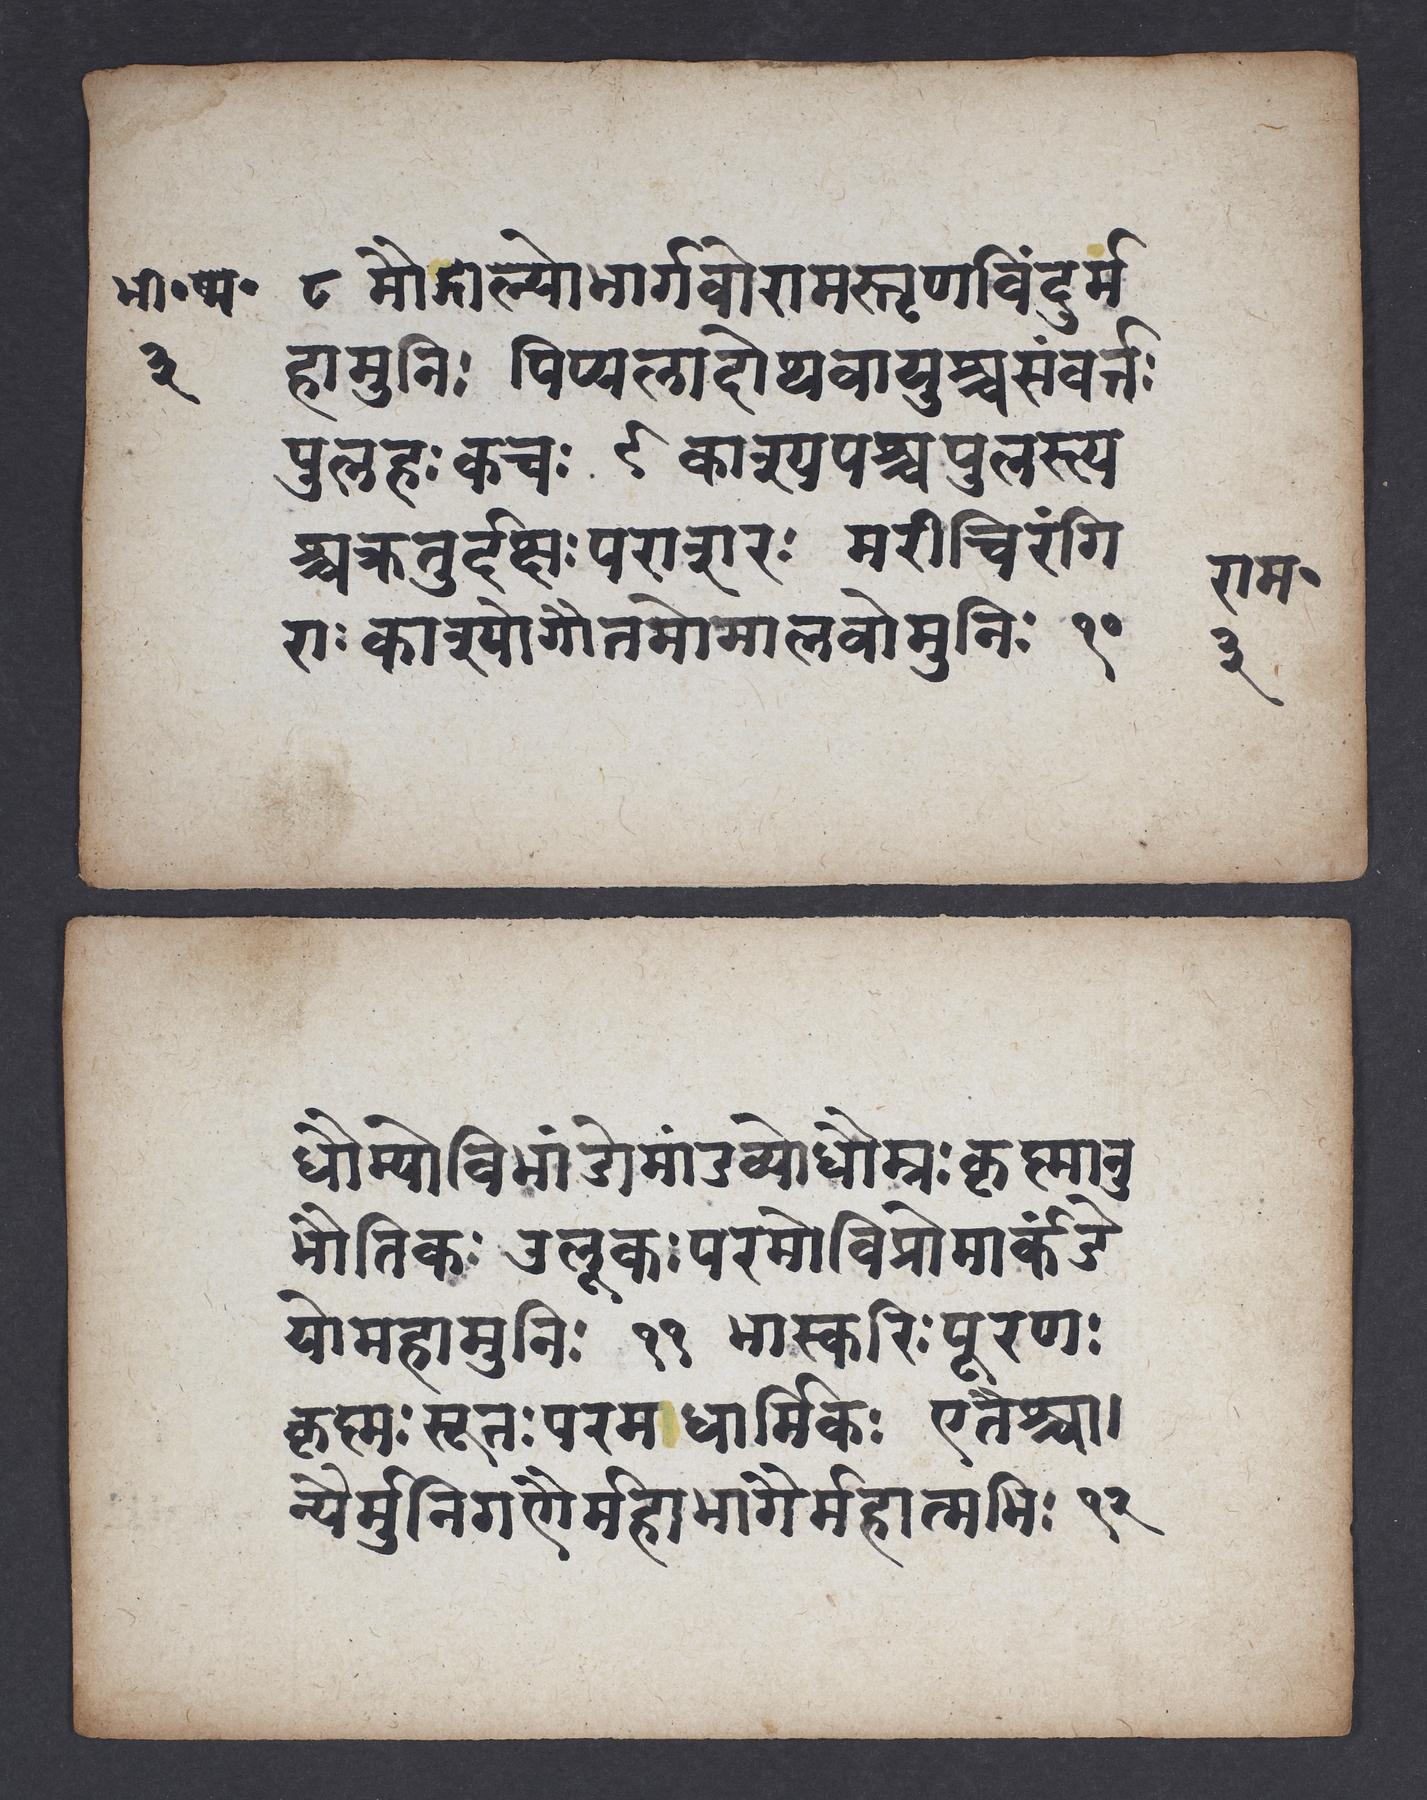 भी॰ष्म॰
३
८ मौद्गल्योभार्गवोरामस्तृणविंदुर्म
हामुनिः पिप्पलादोथवायुश्चसंवर्त्तः
पुलहःकचः ९ काश्यपश्चपुलस्त्य
श्चक्रतुर्दक्षःपराशरः मरीचिरंगि
राःकाश्योगौतमोमालवोमुनिः १०
राम॰
३
धौम्योविभांडोमांडव्योधौम्रःकृष्मानु
भौतिकः उलूकःपरमोविप्रोमार्कंडे
योमहामुनिः ११ भास्करिःपूरणः
कृष्मःसूतःपरमधार्मिकः एतैश्चा।
न्यैर्मुनिगणैर्महाभागैर्महात्मभिः १२